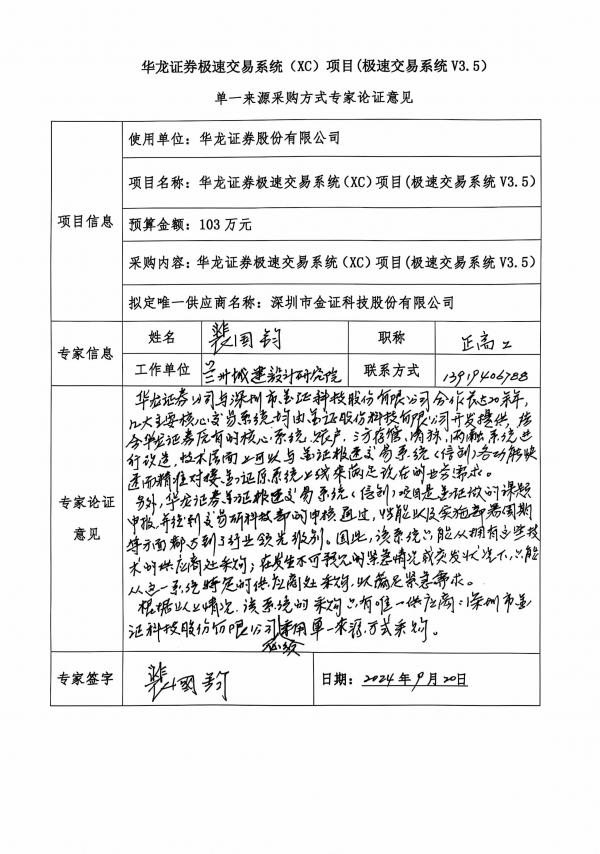 华龙证券极速交易系统（XC）项目(极速交易系统 V3.5)
单一来源采购方式专家论证意见
项目信息
使用单位：华龙证券股份有限公司
项目名称：华龙证券极速交易系统(XC)项目(极速交易系统 V3.5)
预算金额：103 万元
采购内容：华龙证券极速交易系统(XC)项目(极速交易系统 V3.5)
拟定唯一供应商名称：深圳市金证科技股份有限公司
专家信息
姓名 裴国钧 职称 正高工
工作单位 兰州城建设计研究院 联系方式 13919406788
专家论证意见
华龙证券公司与深圳市金证科技股份有限公司合作长达20余年，
几大主要核心交易系统均由金证股份科技有限公司开发提供，结
合华龙证券原有的核心系统、账户、三方存管、清算、两融系统进
行改造，技术层面上可以与金证极速交易系统（信创）各功能快
速而精准对接金证原系统上线来满足现在的业务需求。
另外，华龙证券金证极速交易系统（信创）项目是金证做的课题
申报，并经到交易所科技部的审核通过，性能以及实施部署周期
等方面都达到了行业领先级别。因此，该系统只能从拥有这些技
术的供应商处采购；在发生不可预见的紧急情况或突发状况下，只能
从这一系统特定的供应商处采购，以满足紧急需求。
根据以上情况，该系统的采购只有唯一供应商：深圳市金
证科技股份有限公司采用单一来源方式采购。
专家签字 裴国钧 日期：2024年9月20日